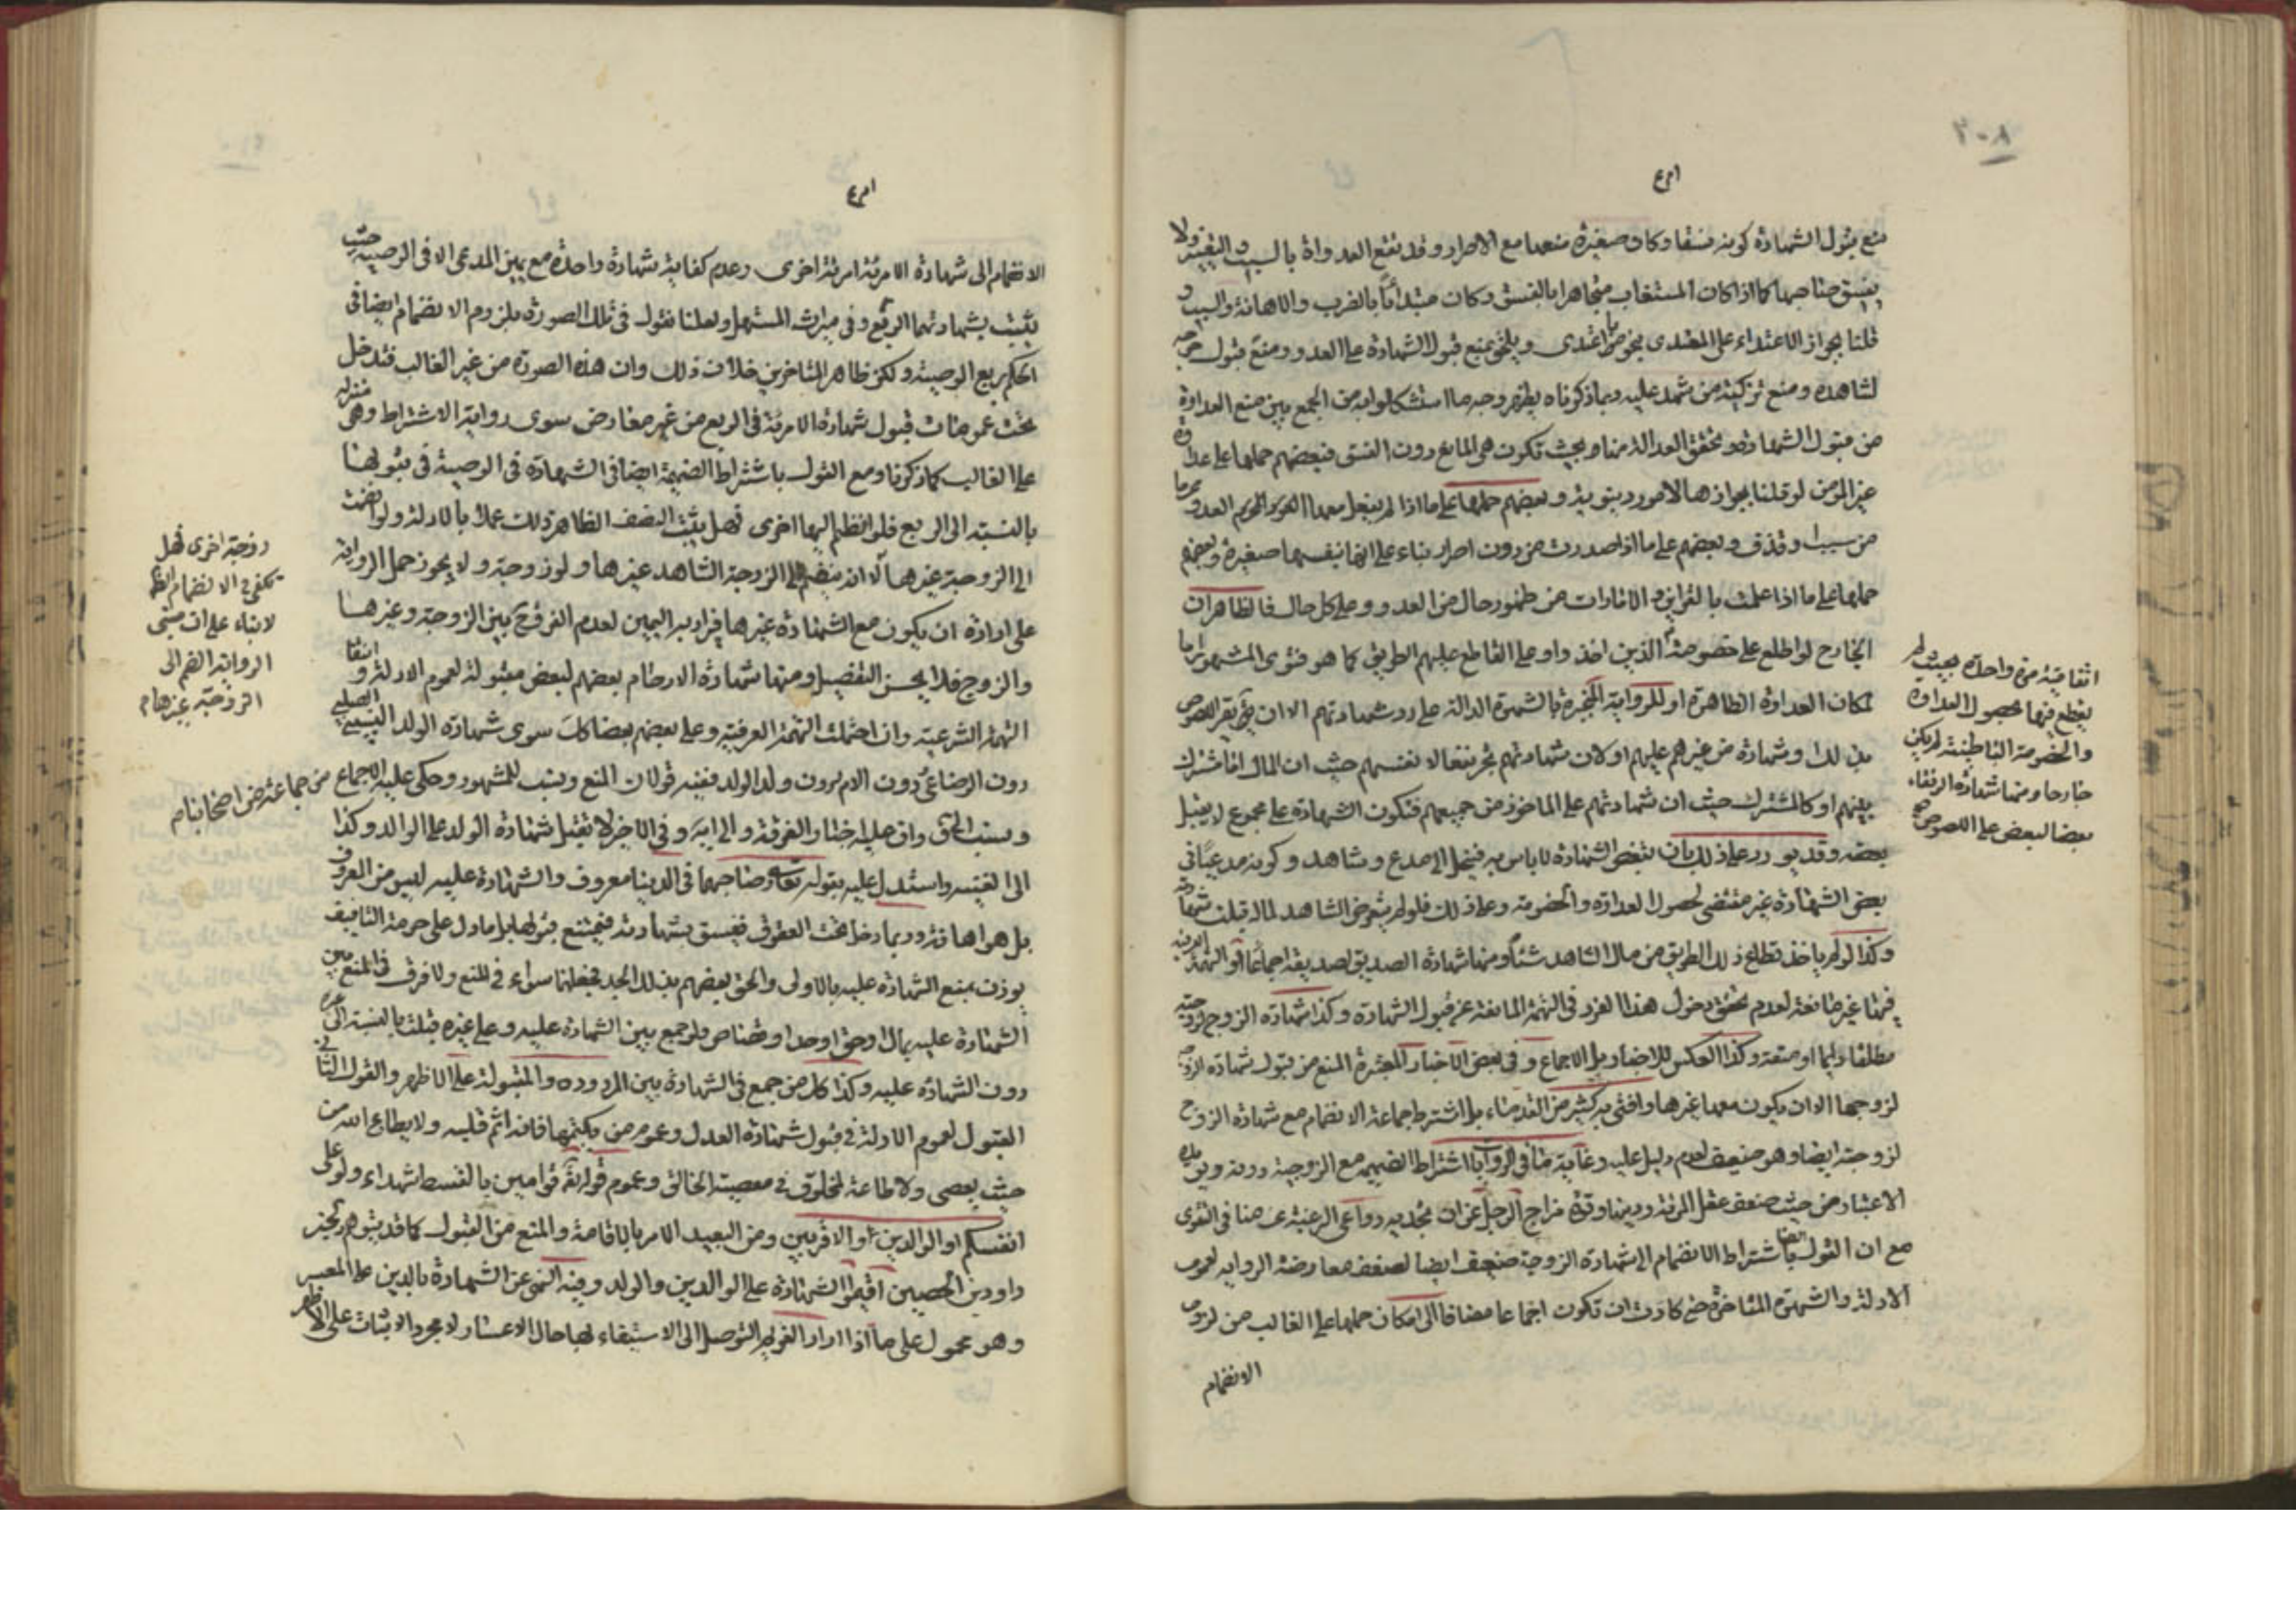 ٣٠٨
منع قبول الشهادة كونه فسقا وكان صغيرة منعها مع الاصرار وقد تقع العداوة بالسبب ولا
يفسق صاحبها كما اذا كان المستغاب متجاهرا بالفسق وكان مبتدأ بالضرب والاهانة والسب و
قلنا بجواز الاعتداء على المعتدى بنحو ما اعتدى ويلحق بمنع قبول الشهادة على العدو ومنع قبول جرحه
لشاهده ومنع تزكيته من شهد عليه وبما ذكرناه يظهر وجه ما استشكلوا به من الجمع بين منع العداوة
من قبول الشهادة وتحقق العدالة منا وبحيث تكون هى المانع دون الفسق فبعضهم حملها على عداوة
غير المؤمن لو قلنا بجوازها لامور دينوية وبعضهم حملها على ما اذا لم يفعل معها العدو
من سب او قذف وبعضهم على ما اذا صدرت من دون اصرار بناء على انها نفسها صغيرة وبعضهم
حملها على ما اذا علمت بالقراين والامارات من ظهور حال من العدو وعلى كل حال فالظاهر ان
الخارج لو اطلع على خصومة الذين اخذوا وعلى القاطع عليهم الطريق كما هو فتوى المشهور اما
لمكان العداوة الظاهرة او للرواية المنجبرة بالشهرة الدالة على رد شهادتهم الا ان يقر اللصوص
بذلك وشهادة من غيرهم عليهم او لان شهادتهم تجر نفعا لانفسهم حيث ان المال اما مشترك
بينهم او كالمشترك حيث ان شهادتهم على الماخوذ من جميعهم فتكون الشهادة على مجموع لا يقبل
بعضه وقد يورد على ذلك بان بتبعض الشهادة لا باس به فينحل الى مدع وشاهد وكونه مدعيا فى
بعض الشهادة غير مقتضى لحصول العداوة والخصومة وعلى ذلك فلو لم يتعرض الشاهد لماله قبلت شهادته
وكذا لو لم ياخذ قطاع ذلك الطريق من مال الشاهد شئا ومنها شهادة الصديق لصديقه اجماعا والتهمة العرفية
فيها غير مانعة لعدم تحقق دخول هذا الفرد فى التهمة المانعة عن قبول الشهادة وكذا شهادة الزوج لزوجته
مطلقا دايما او متعة وكذا العكس للاخبار بل الاجماع وفى بعض الاخبار المعتبرة المنع من قبول شهادة الزوجة
لزوجها الا ان يكون معها غيرها وافتى به كثير من القدماء بل اشترط جماعة الانضمام مع شهادة الزوج
لزوجته ايضا وهو ضعيف لعدم دليل عليه وغاية ما فى الروايات اشتراط الضميمة مع الزوجية دونه ويؤيده
الاعتبار من حيث ضعف عقل المرئة ودينها وقوة مزاج الرجل عن ان تجذبه دواعى الرغبة عما فى التقوى
مع ان القول باشتراط الانضمام الى شهادة الزوجة ضعيف ايضا لضعف معارضة الرواية لعموم
الادلة والشهرة المتاخرة حتى كادت ان تكون اجماعا مضافا الى امكان حملها على الغالب من لزوم
الانضمام
اتفاقية مرة واحدة بحيث لم
يقطع فيها بحصول العداوة
والخصومة الباطنية لم يكن
خارجا ومنها شهادة الرفقاء
بعضا لبعض على اللصوص
الانضمام الى شهادة الامرئة امرئة اخرى وعدم كفاية شهادة واحدة مع يمين المدعى الا فى الوصية حيث
يثبت بشهادتها الربع وفى ميراث المستهل ولعلنا نقول فى تلك الصورة بلزوم الانضمام ايضا فى
الحكم بربع الوصية ولكن ظاهر المتاخرين خلاف ذلك وان هذه الصورة من غير الغالب فتدخل
تحت عمومات قبول شهادة الامرئة فى الربع من غير معارض سوى رواية الاشتراط وهى منزلة
على الغالب كما ذكرنا ومع القول باشتراط الضميمة ايضا فى الشهادة فى الوصية فى قبولها
بالنسبة الى الربع فلو انضم اليها اخرى فهل يثبت النصف الظاهر ذلك عملا بالادلة ولو انضمت
الى الزوجة غيرها الا انه ينضم الى الزوجة الشاهد غيرها ولو زوجة ولا يجوز حمل الرواية
على ارادة ان يكون مع الشهادة غيرها فيراد به اليمين لعدم الفرق ح بين الزوجة وغيرها
والزوج فلا يحسن التفصيل ومنها شهادة الارحام بعضهم لبعض مقبولة لعموم الادلة وانتفاء
التهمة الشرعية وان احتملت التهمة العرفية وعلى بعضهم بعضا كك سوى شهادة الولد النسبى الصلبى
دون الرضاعى دون الام دون ولد الولد ففيه قولان المنع ونسب للمشهور وحكى عليه الاجماع من جماعة من اصحابنا
ونسب الى الغنية واستدل عليه بقوله تعالى وصاحبهما فى الدنيا معروف والشهادة عليه ليس من المعروف
يوذن بمنع الشهادة عليه بالاولى والحق بعضهم بذلك الجد فجعلها سواء فى المنع ولا فرق فى المنع بين
الشهادة عليه بمال او حق او حد او قصاص ولو جمع بين الشهادة عليه وعلى غيره قبلت بالنسبة الى غيره
دون الشهادة عليه وكذا كل من جمع فى الشهادة بين المردودة والمقبولة على الاظهر والقول الثانى
القبول لعموم الادلة فى قبول شهادة العدل وعموم من يكتمها فانه اثم قلبه ولا يطاع الله من
حيث يعصى ولا طاعة لمخلوق فى معصية الخالق وعموم قوله تع قوامين بالقسط شهداء ولو على
انفسكم او الوالدين او الاقربين ومن البعيد الامر بالاقامة والمنع من القبول كما قد يتوهم ولخبر
داود بن الحصين اقيموا الشهادة على الوالدين والولد وفيه النهى عن الشهادة بالدين على المعسر
وهو محمول على ما اذا اراد الغريم التوصل الى الاستيفاء بها حال الاعسار لا مجرد الاثبات على الاظهر
زوجة اخرى فهل
يكفى ح الانضمام الظ
لا بناء على ان مبنى
الرواية الضم الى
الزوجة غيرها م